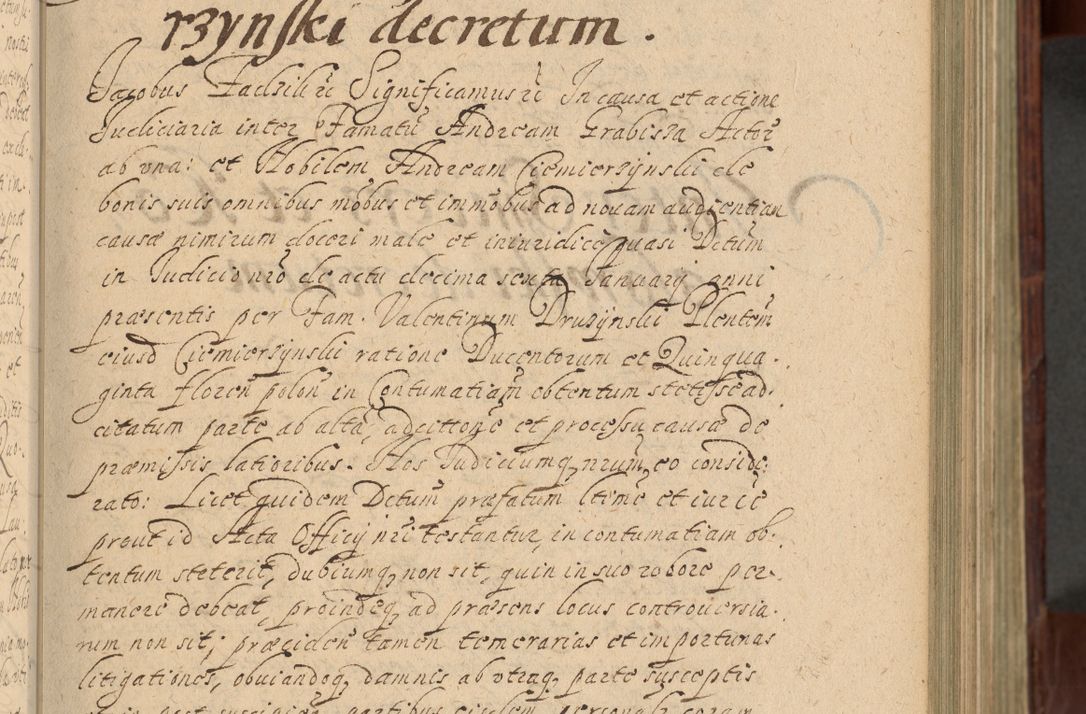 rzynski decretum.
Jacobus Zadzik etc Significamus etc In causa et actione
Judiciaria inter Famatū Andream Grabisza Actor̄
ab vna: et Nobilem Andream Ciemierzynski de
bonis suis omnibus mobus et immobus ad nouam audientian
causæ nimirum doceri male et iniuridice quasi Dctum
in Judicio nrō de actu decima sexta Januarij anni
præsentis per Fam. Valentinum Druzynski Plentem
eiusd Ciemierzynski ratione Ducentorum et Quinqua.
ginta floreñ poloñ in Contumatiam obtentum stetisse ad.
citatum parte ab altā, ac cittone et processu causæ de
præmissis latioribus. Nos Judiciumq, nrum, eo conside:
rato: Licet quidem Dctum præfatum ltime et iurce
prout id Acta Officij nrī testantur, in contumatiam ob.
tentum steterit, dubiumq, non sit, quin in suo robore per.
manere debeat, proindeq, ad præsens locus controuersia.
rum non sit; præcideñ tamen temerarias et importunas
litigationes, obuiandoq, damnis ab vtraq, parte susceptis
et in post suscipieñ partibus eisdem personalr coram